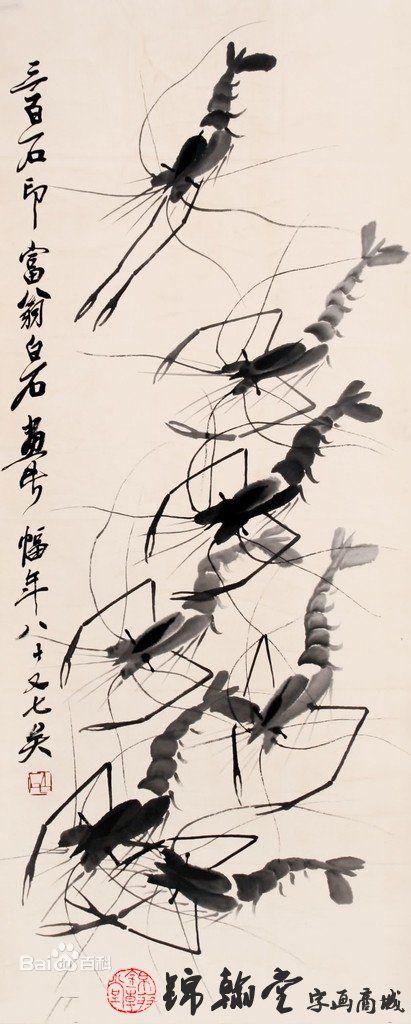 三百石印富翁白石畫此幅年八十又七矣
Bai百科
锦翰堂 字画商城